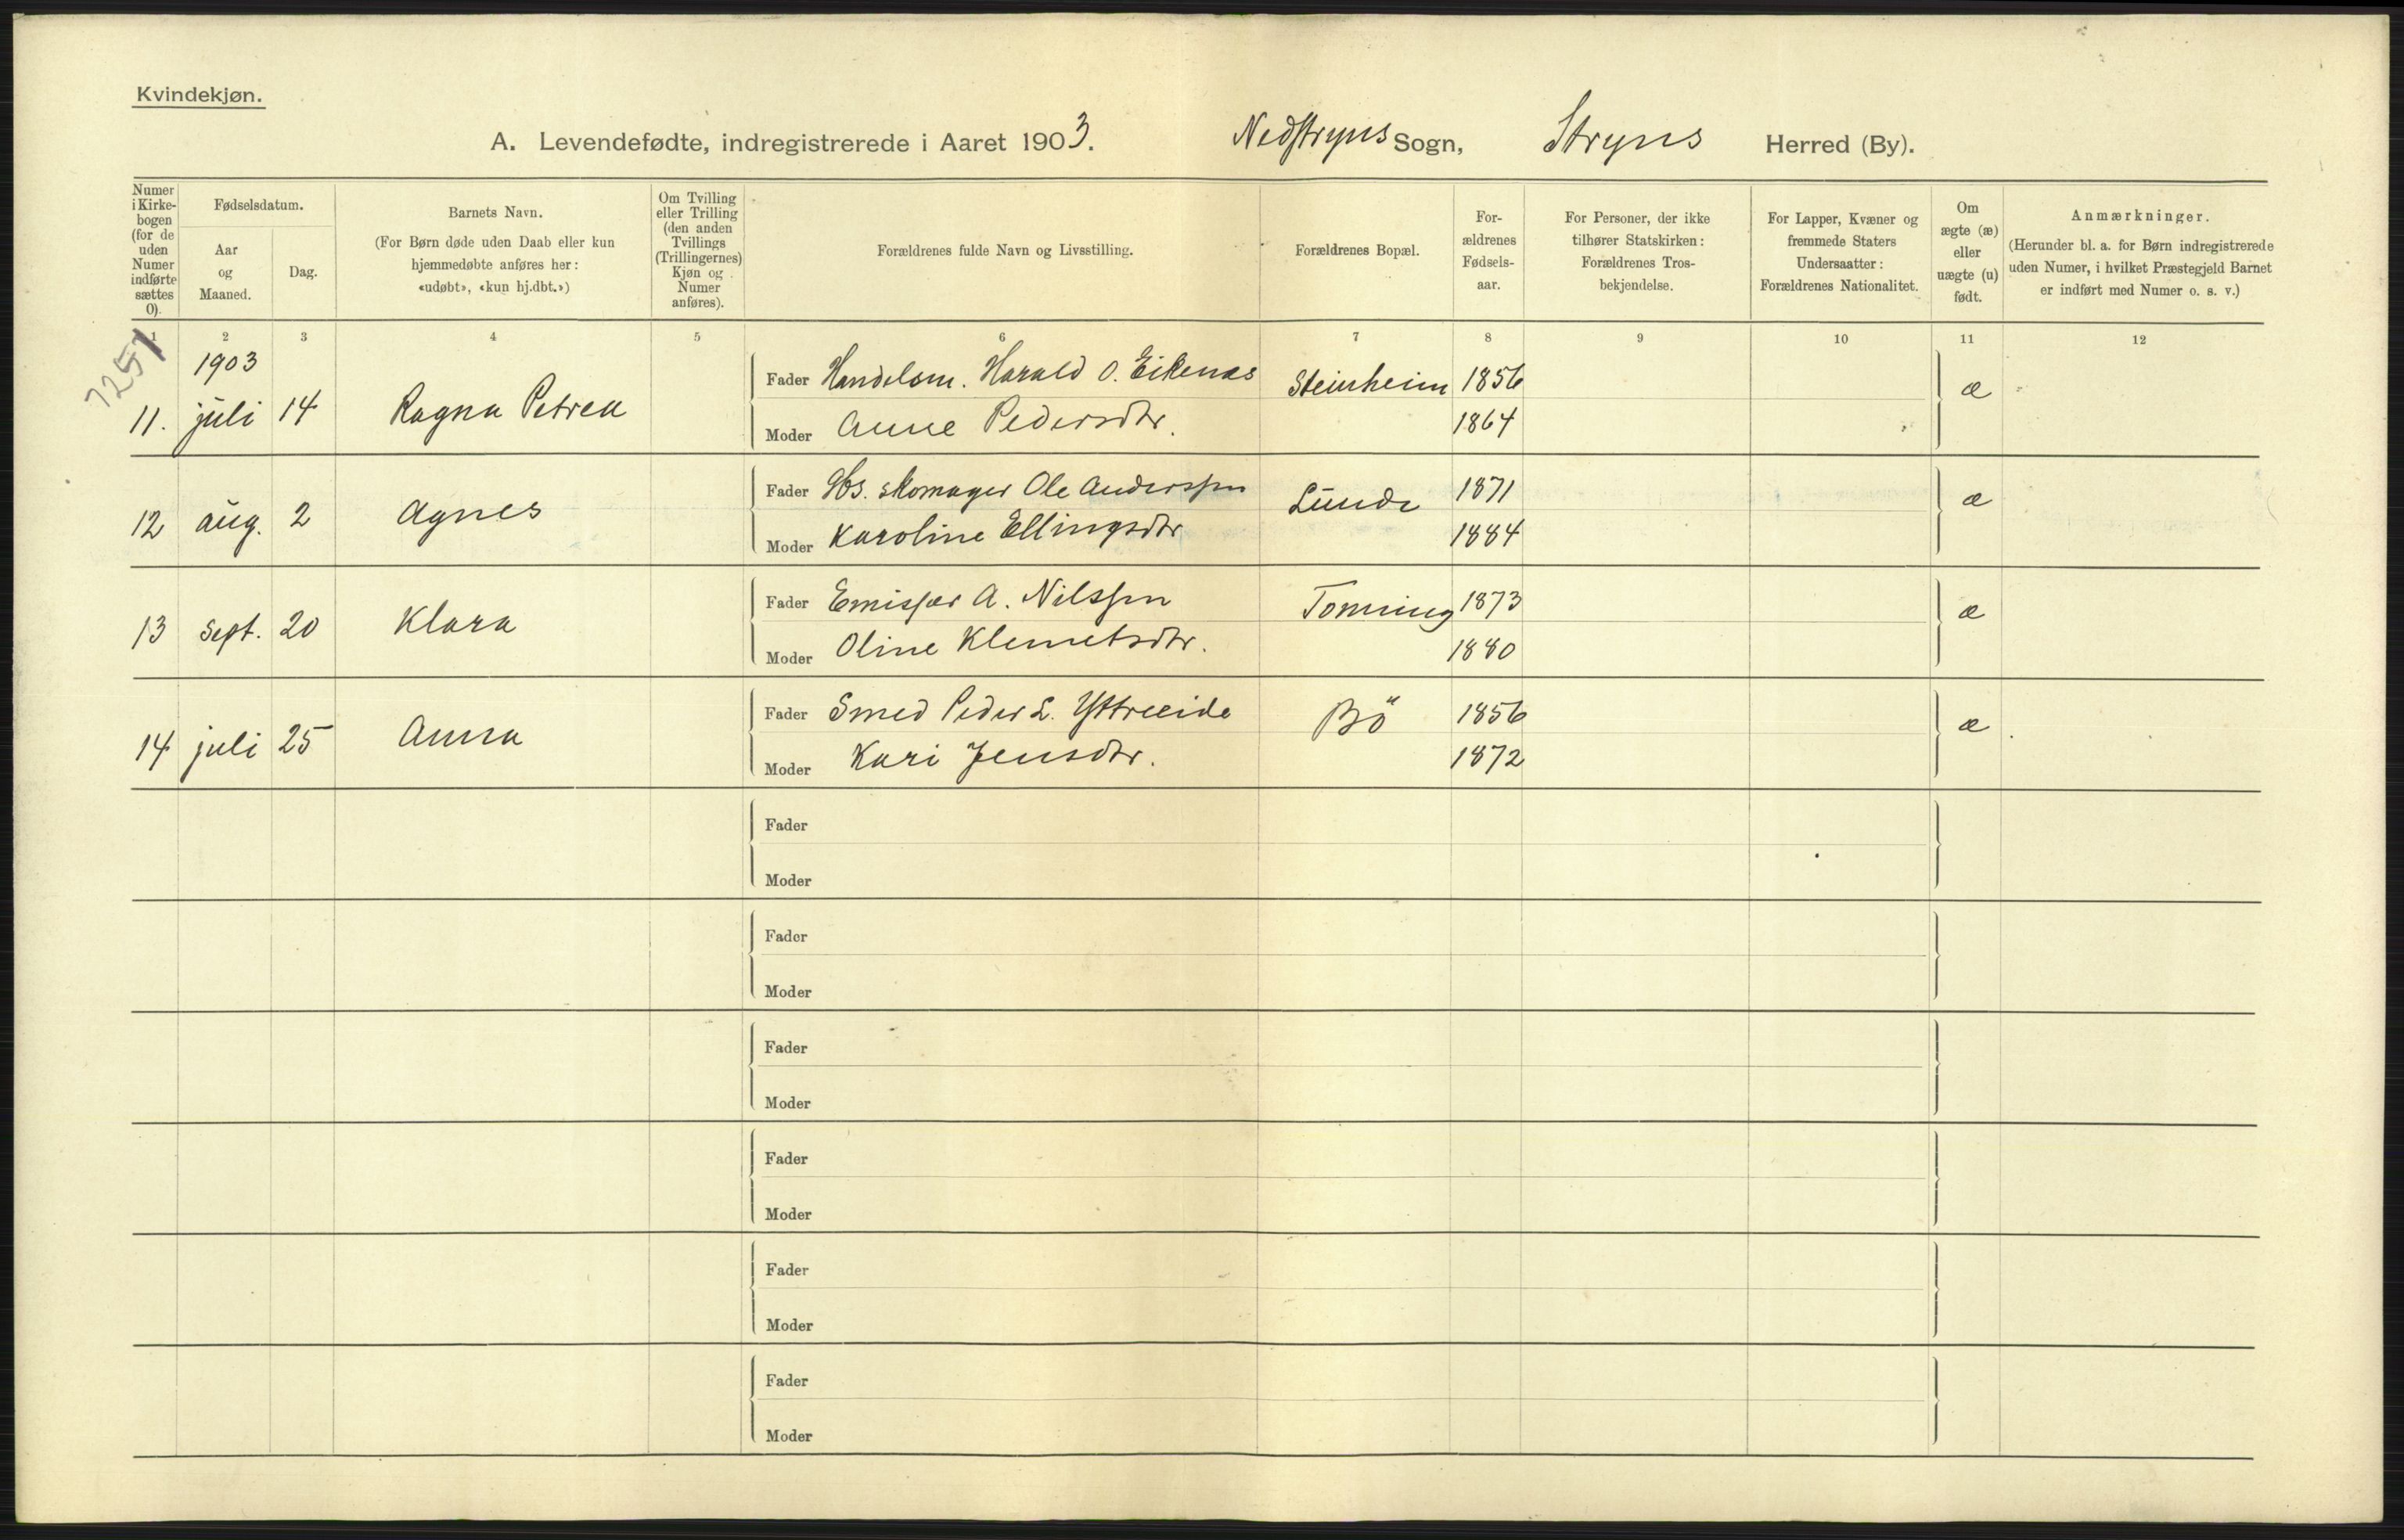 Kvindekjøn.
A. Levendefødte, indregistrerede i Aaret 1903. Nedstryns Sogn, Stryns Herred (By).
Numer i Kirke-bogen (for de uden Numer indførte sættes 0).
Fødselsdatum.
Aar og Maaned.
Dag.
Barnets Navn.
(For Børn døde uden Daab eller kun
hjemmedøbte anføres her:
«udøbt», «kun hj.dbt.»)
Om Tvilling
eller Trilling
(den anden
Tvillings
(Trillingernes)
Kjøn og
Numer
anføres).
Forældrenes fulde Navn og Livsstilling.
Forældrenes Bopæl.
For-
ældrenes
Fødsels-
aar.
For Personer, der ikke
tilhører Statskirken:
Forældrenes Tros-
bekjendelse.
For Lapper, Kvæner og
fremmede Staters
Undersaatter:
Forældrenes Nationalitet.
Om
ægte (æ)
eller
uægte (u)
født.
Anmærkninger.
(Herunder bl. a. for Børn indregistrerede
uden Numer, i hvilket Præstegjeld Barnet
er indført med Numer o. s. v.)
1 2 3 4 5 6 7 8 9 10 11 12
7251
1903
11. juli 14 Ragna Petrea Fader Handelsm. Harald O. Eikenæs Steinheim 1856 æ
Moder Anne Pedersdtr. 1864
12 aug. 2 Agnes Fader Hs. skomager Ole Anderssen Lunde 1871 æ
Moder Karoline Ellingsdtr 1884
13 sept. 20 Klara Fader Emissær A. Nilssen Tonning 1873 æ
Moder Oline Klemetsdtr. 1880
14 juli 25 Anna Fader Smed Peder L. Yttreeide Bö 1856 æ
Moder Kari Jensdtr. 1872
Fader
Moder
Fader
Moder
Fader
Moder
Fader
Moder
Fader
Moder
Fader
Moder